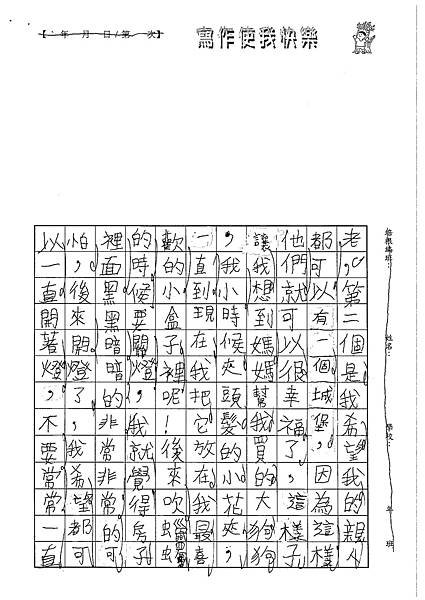 【 年 月 日/第 次】
寫作使我快樂
姓名： 學校： 年 班
老，第二個是我希望我的親人
都可以有一個城堡，因為這樣
他們就可以很幸福了，這樣子
讓我想到媽媽幫我買的大狗狗
，我小時候夾頭髮的小花夾，
一直到現在我把它放在我最喜
歡的小盒子裡呢！後來吹蠟
的時候要關燈，我就覺得房子
裡面黑黑暗暗的，非常非常的
怕，後來開燈了，我希望都可
以一直開著燈，不要常常一直